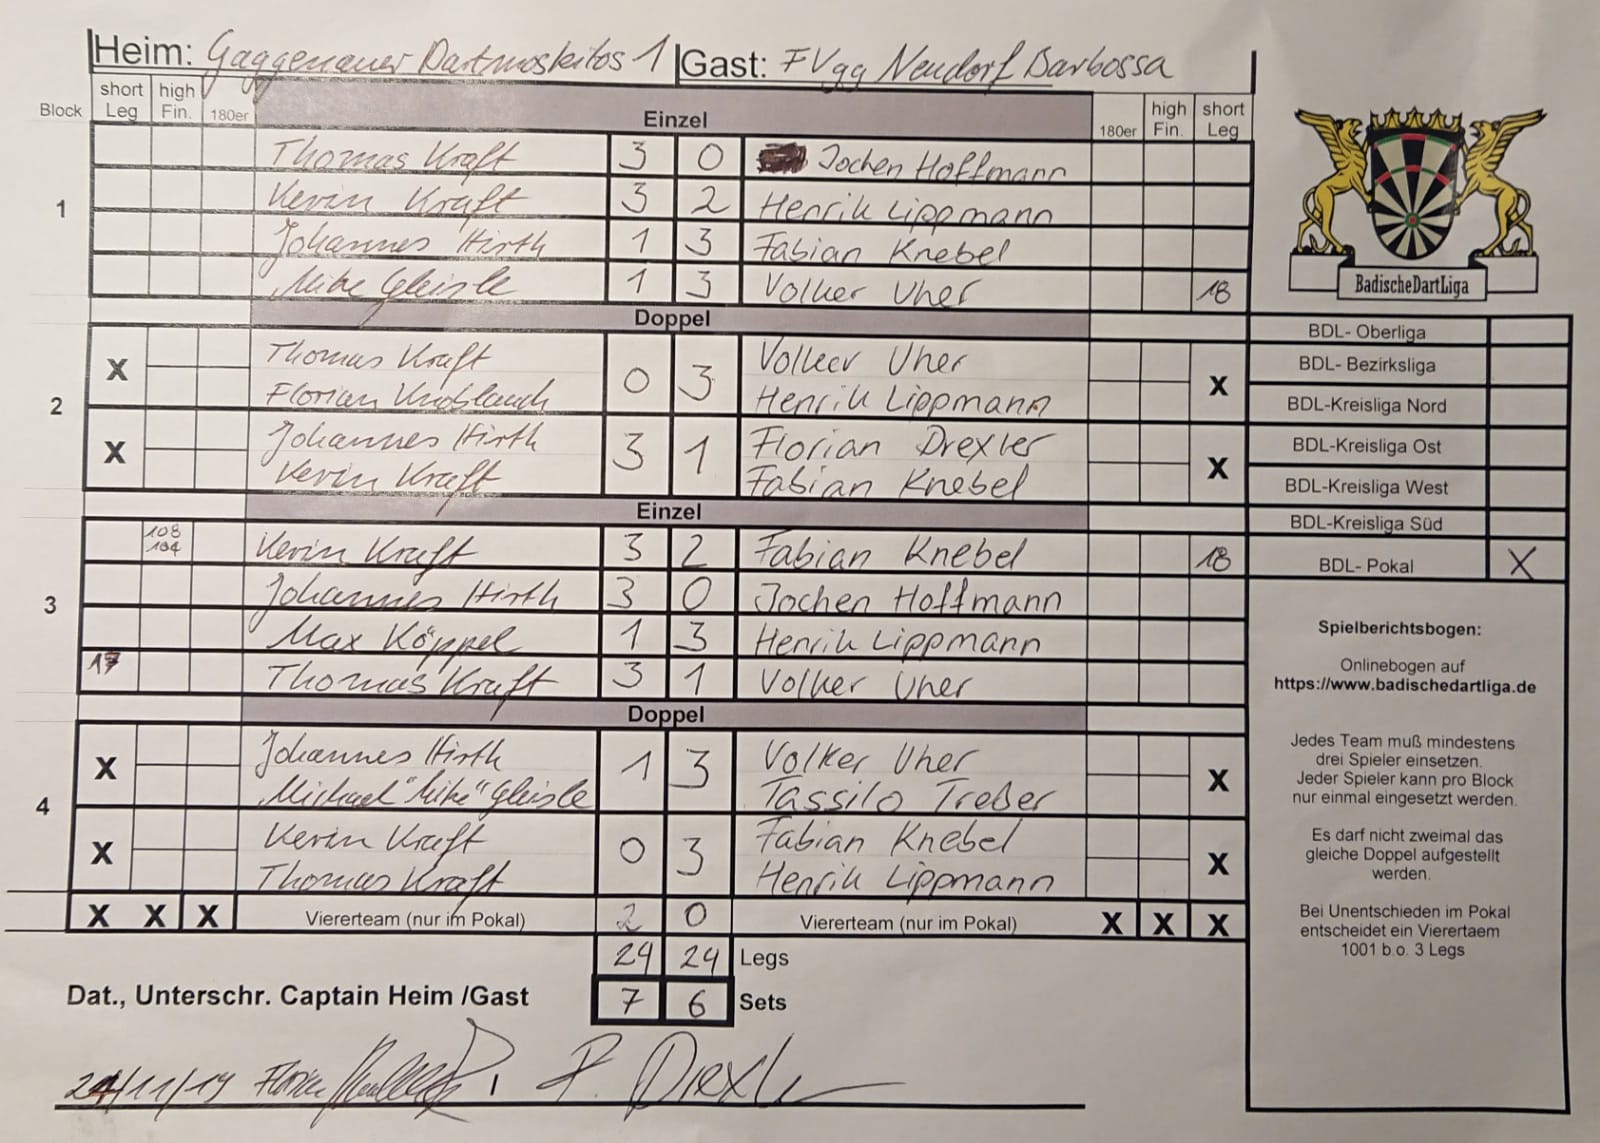 Heim: Gaggenauer Dartmoskitos 1 Gast: FVgg Neudorf Barbossa
Block short Leg high Fin. 180er Einzel 180er high Fin. short Leg
1
Thomas Kraft 3 0 Jochen Hoffmann
Kevin Kraft 3 2 Henrik Lippmann
Johannes Hirth 1 3 Fabian Knebel
Mike Gleisle 1 3 Volker Uher 18
Doppel
2
X Thomas Kraft 0 3 Volker Uher X
Florian Knoblauch Henrik Lippmann
X Johannes Hirth 3 1 Florian Drexler X
Kevin Kraft Fabian Knebel
Einzel
3
108 104 Kevin Kraft 3 2 Fabian Knebel 18
Johannes Hirth 3 0 Jochen Hoffmann
Max Köppel 1 3 Henrik Lippmann
17 Thomas Kraft 3 1 Volker Uher
Doppel
4
X Johannes Hirth 1 3 Volker Uher X
Michael "Mike" Gleisle Tassilo Treßer
X Kevin Kraft 0 3 Fabian Knebel X
Thomas Kraft Henrik Lippmann
X X X Viererteam (nur im Pokal) 2 0 Viererteam (nur im Pokal) X X X
24 24 Legs
Dat., Unterschr. Captain Heim /Gast 7 6 Sets
/11/19 Florian F. Drexler
BadischeDartLiga
BDL- Oberliga
BDL- Bezirksliga
BDL-Kreisliga Nord
BDL-Kreisliga Ost
BDL-Kreisliga West
BDL-Kreisliga Süd
BDL- Pokal X
Spielberichtsbogen:
Onlinebogen auf
https://www.badischedartliga.de
Jedes Team muß mindestens
drei Spieler einsetzen.
Jeder Spieler kann pro Block
nur einmal eingesetzt werden.
Es darf nicht zweimal das
gleiche Doppel aufgestellt
werden.
Bei Unentschieden im Pokal
entscheidet ein Vierertaem
1001 b.o. 3 Legs